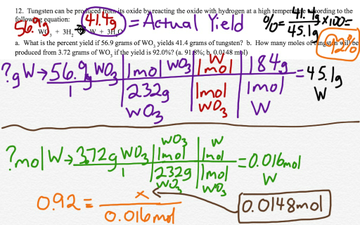 12. Tungsten can be produced from its oxide by reacting the oxide with hydrogen at a high temperature according to the
following equation:
56.9g 41.4g = Actual Yield
WO3 + 3H2 → W + 3H2O
% = 41.4g / 45.1g x100 =
92%
a. What is the percent yield if 56.9 grams of WO3 yields 41.4 grams of tungsten? b. How many moles of tungsten will be
produced from 3.72 grams of WO3 if the yield is 92.0%? (a. 91.8%; b. 0.0148 mol)
?g W → 56.9g WO3 | 1mol WO3 | 1mol W | 184g = 45.1g W
1 | 232g WO3 | 1mol WO3 | 1mol W
?mol W → 3.72g WO3 | 1mol WO3 | 1mol W = 0.016mol W
1 | 232g WO3 | 1mol WO3
0.92 = x / 0.016mol
0.0148mol